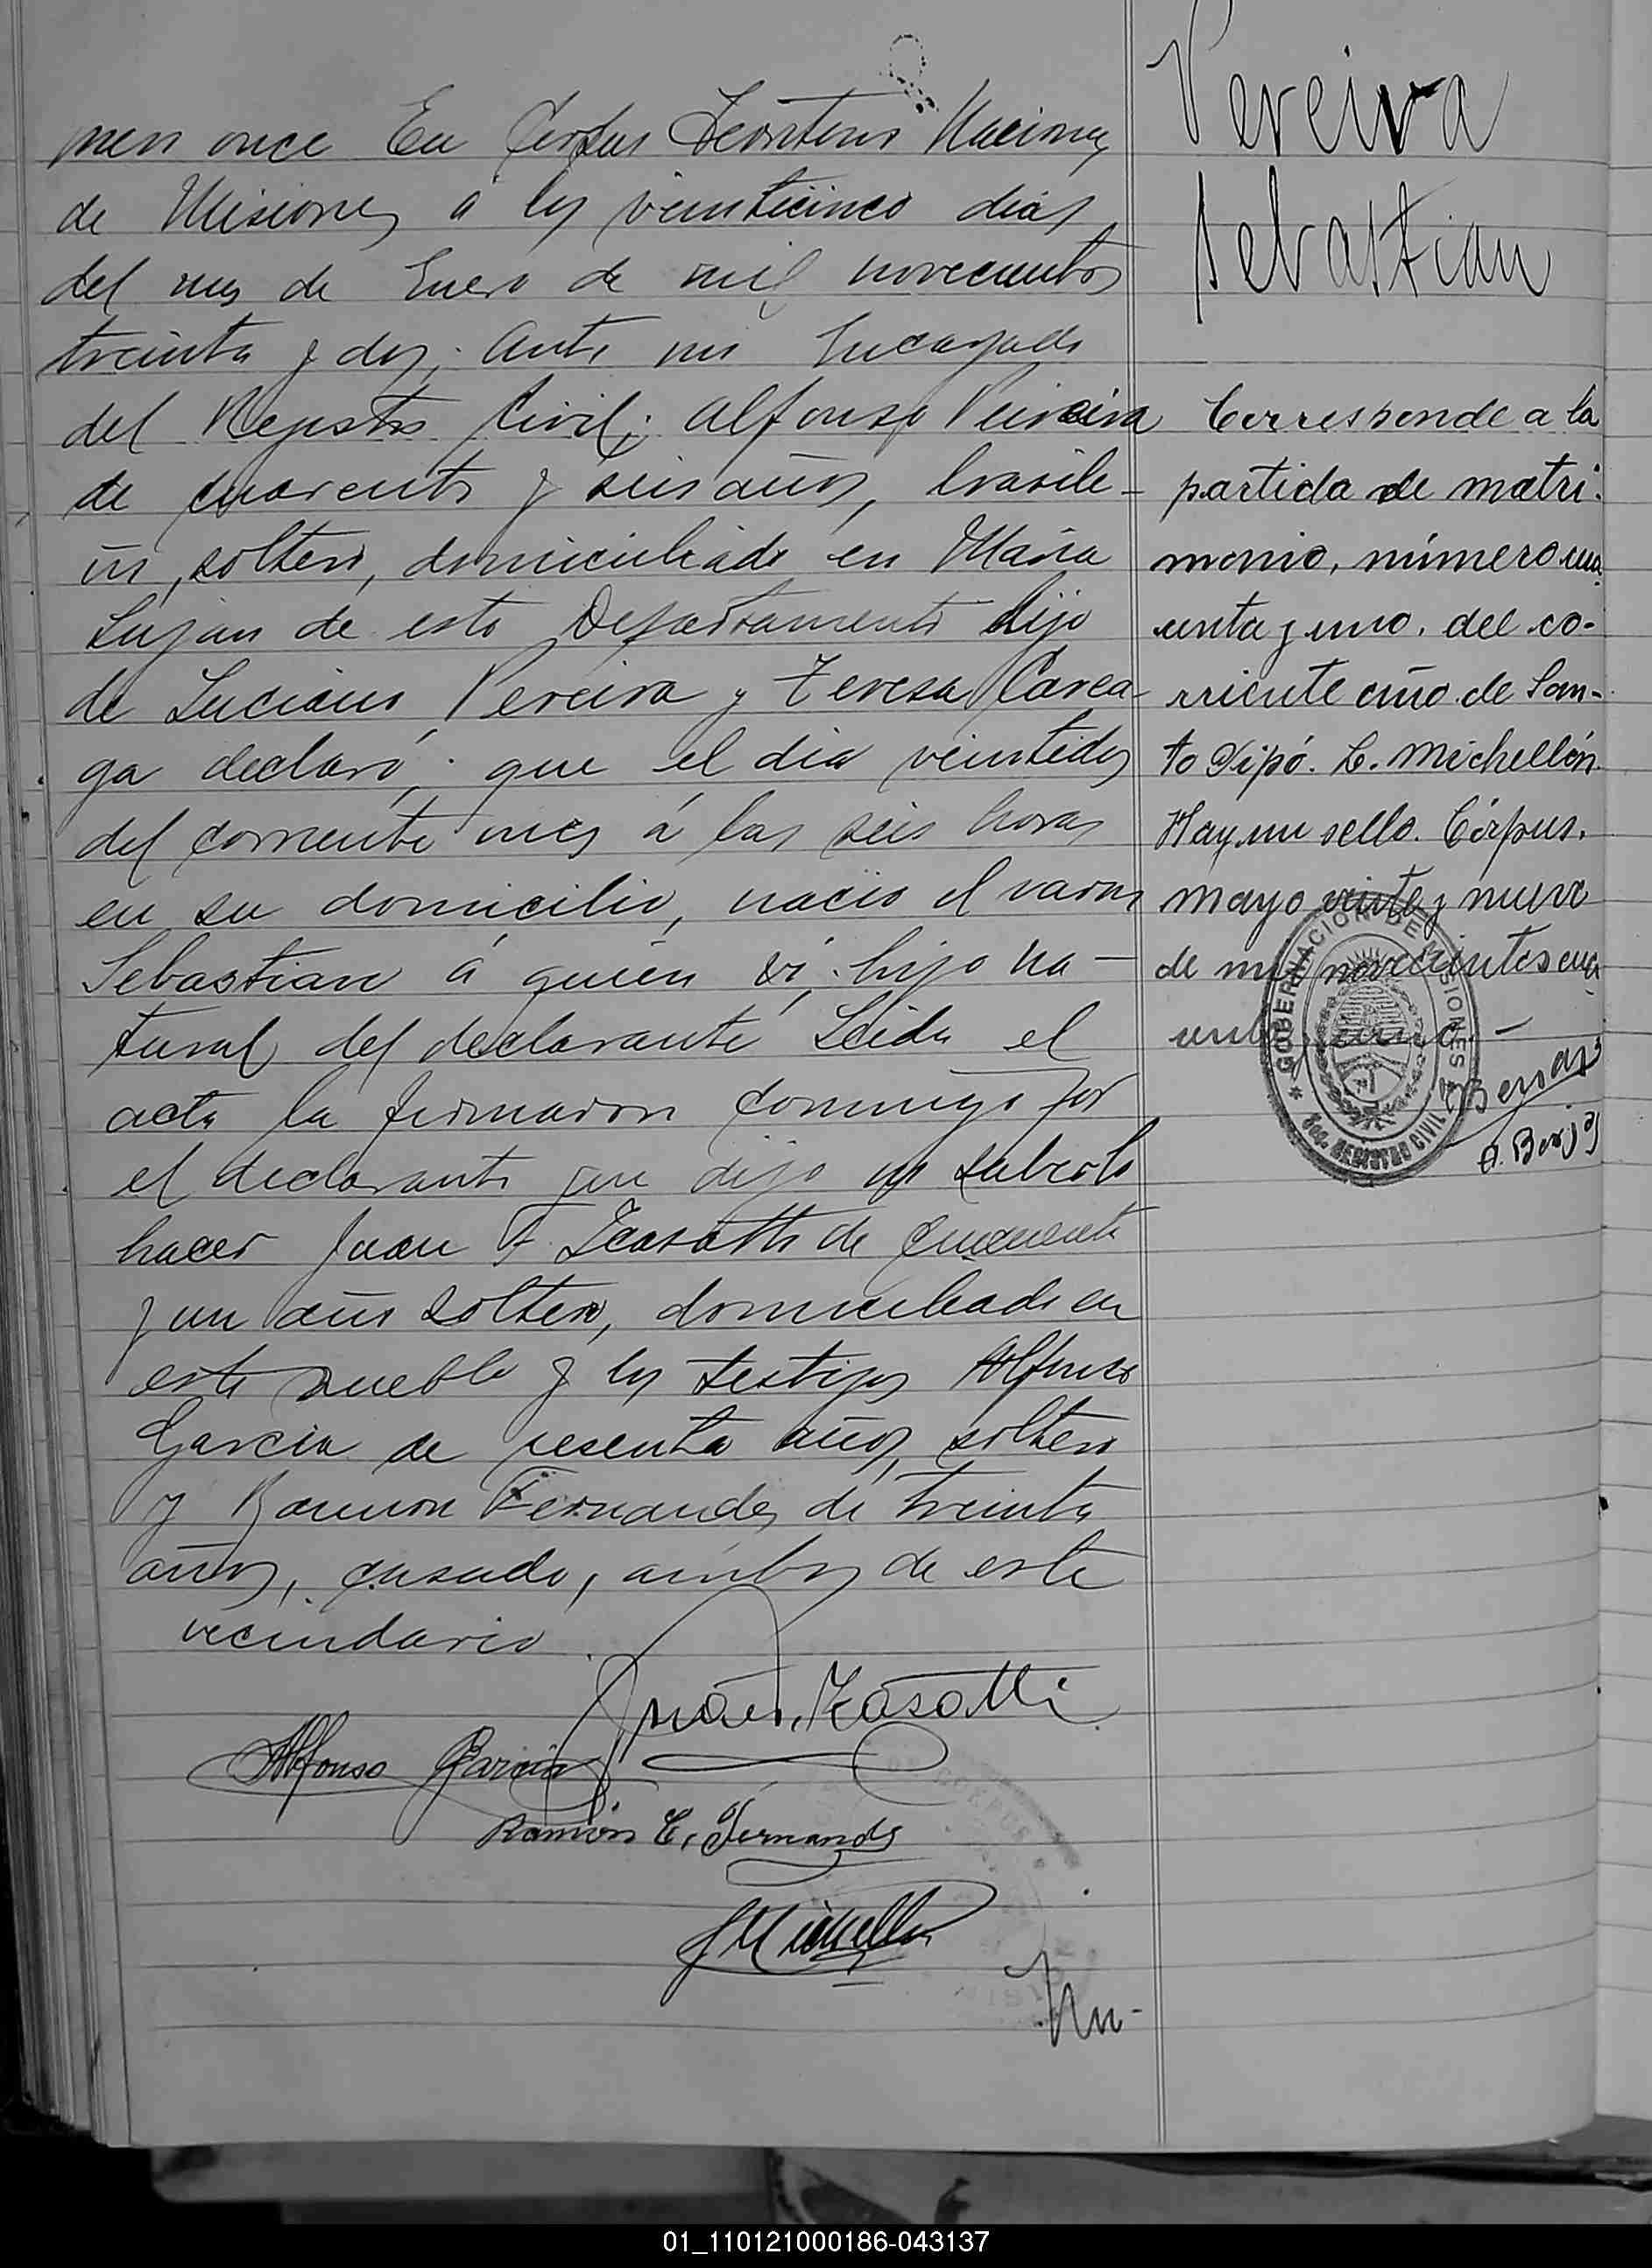 mero once En Corpus Territorio Nacional
de Misiones á los veinticinco dias
del mes de Enero de mil novecientos
treinta y dos; ante mi Encargado
del Registro Civil; Alfonso Pereira
de cuarenta y seis años, brasile-
ño, soltero, domiciliado en Maria
Lujan de este Departamento hijo
de Luciano Pereira y Teresa Carea-
ga declaró; que el dia veintidos
del corriente mes á las seis horas
en su domicilio, nació el varon
Sebastian á quien vi; hijo na-
tural del declarante Leida el
acta la firmaron conmigo por
el declarante que dijo no saberlo
hacer Juan F. de cincuenta
y un años soltero, domiciliado en
este pueblo y los testigos Alfonso
Garcia de sesenta años, soltero
y Ramon Fernandez de treinta
años, casado, ambos de este
vecindario.
Alfonso Garcia
Ramón E. Fernandez
Nu-
Pereira
Sebastian
Corresponde a la
partida de matri-
monio, número cua-
renta y uno. del co-
rriente año de San-
to Pipó. L. Michellón.
Hay un sello. Córpus,
mayo veinte y nueve
de mil novecientos cua
renta y uno.-
GOBERNACION DE MISIONES
REGISTRO CIVIL
01_110121000186-043137